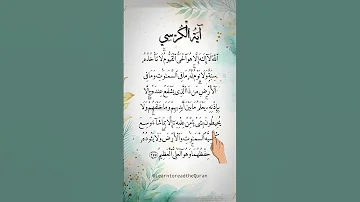 آيَةُ الْكُرْسِي
اَللّٰهُ لَآ اِلٰهَ اِلَّا هُوَ اَلْحَيُّ الْقَيُّوْمُ لَا تَأْخُذُهُ
سِنَةٌ وَّلَا نَوْمٌ لَهُ مَا فِي السَّمٰوٰتِ وَمَا فِي
الْاَرْضِ مَنْ ذَا الَّذِيْ يَشْفَعُ عِنْدَهُ اِلَّا
بِاِذْنِهِ يَعْلَمُ مَا بَيْنَ اَيْدِيْهِمْ وَمَا خَلْفَهُمْ وَلَا
يُحِيْطُوْنَ بِشَيْءٍ مِّنْ عِلْمِهِ اِلَّا بِمَا شَآءَ وَسِعَ
كُرْسِيُّهُ السَّمٰوٰتِ وَالْاَرْضَ وَلَا يَئُوْدُهُ
حِفْظُهُمَا وَهُوَ الْعَلِيُّ الْعَظِيْمُ
@LearntoreadtheQuran